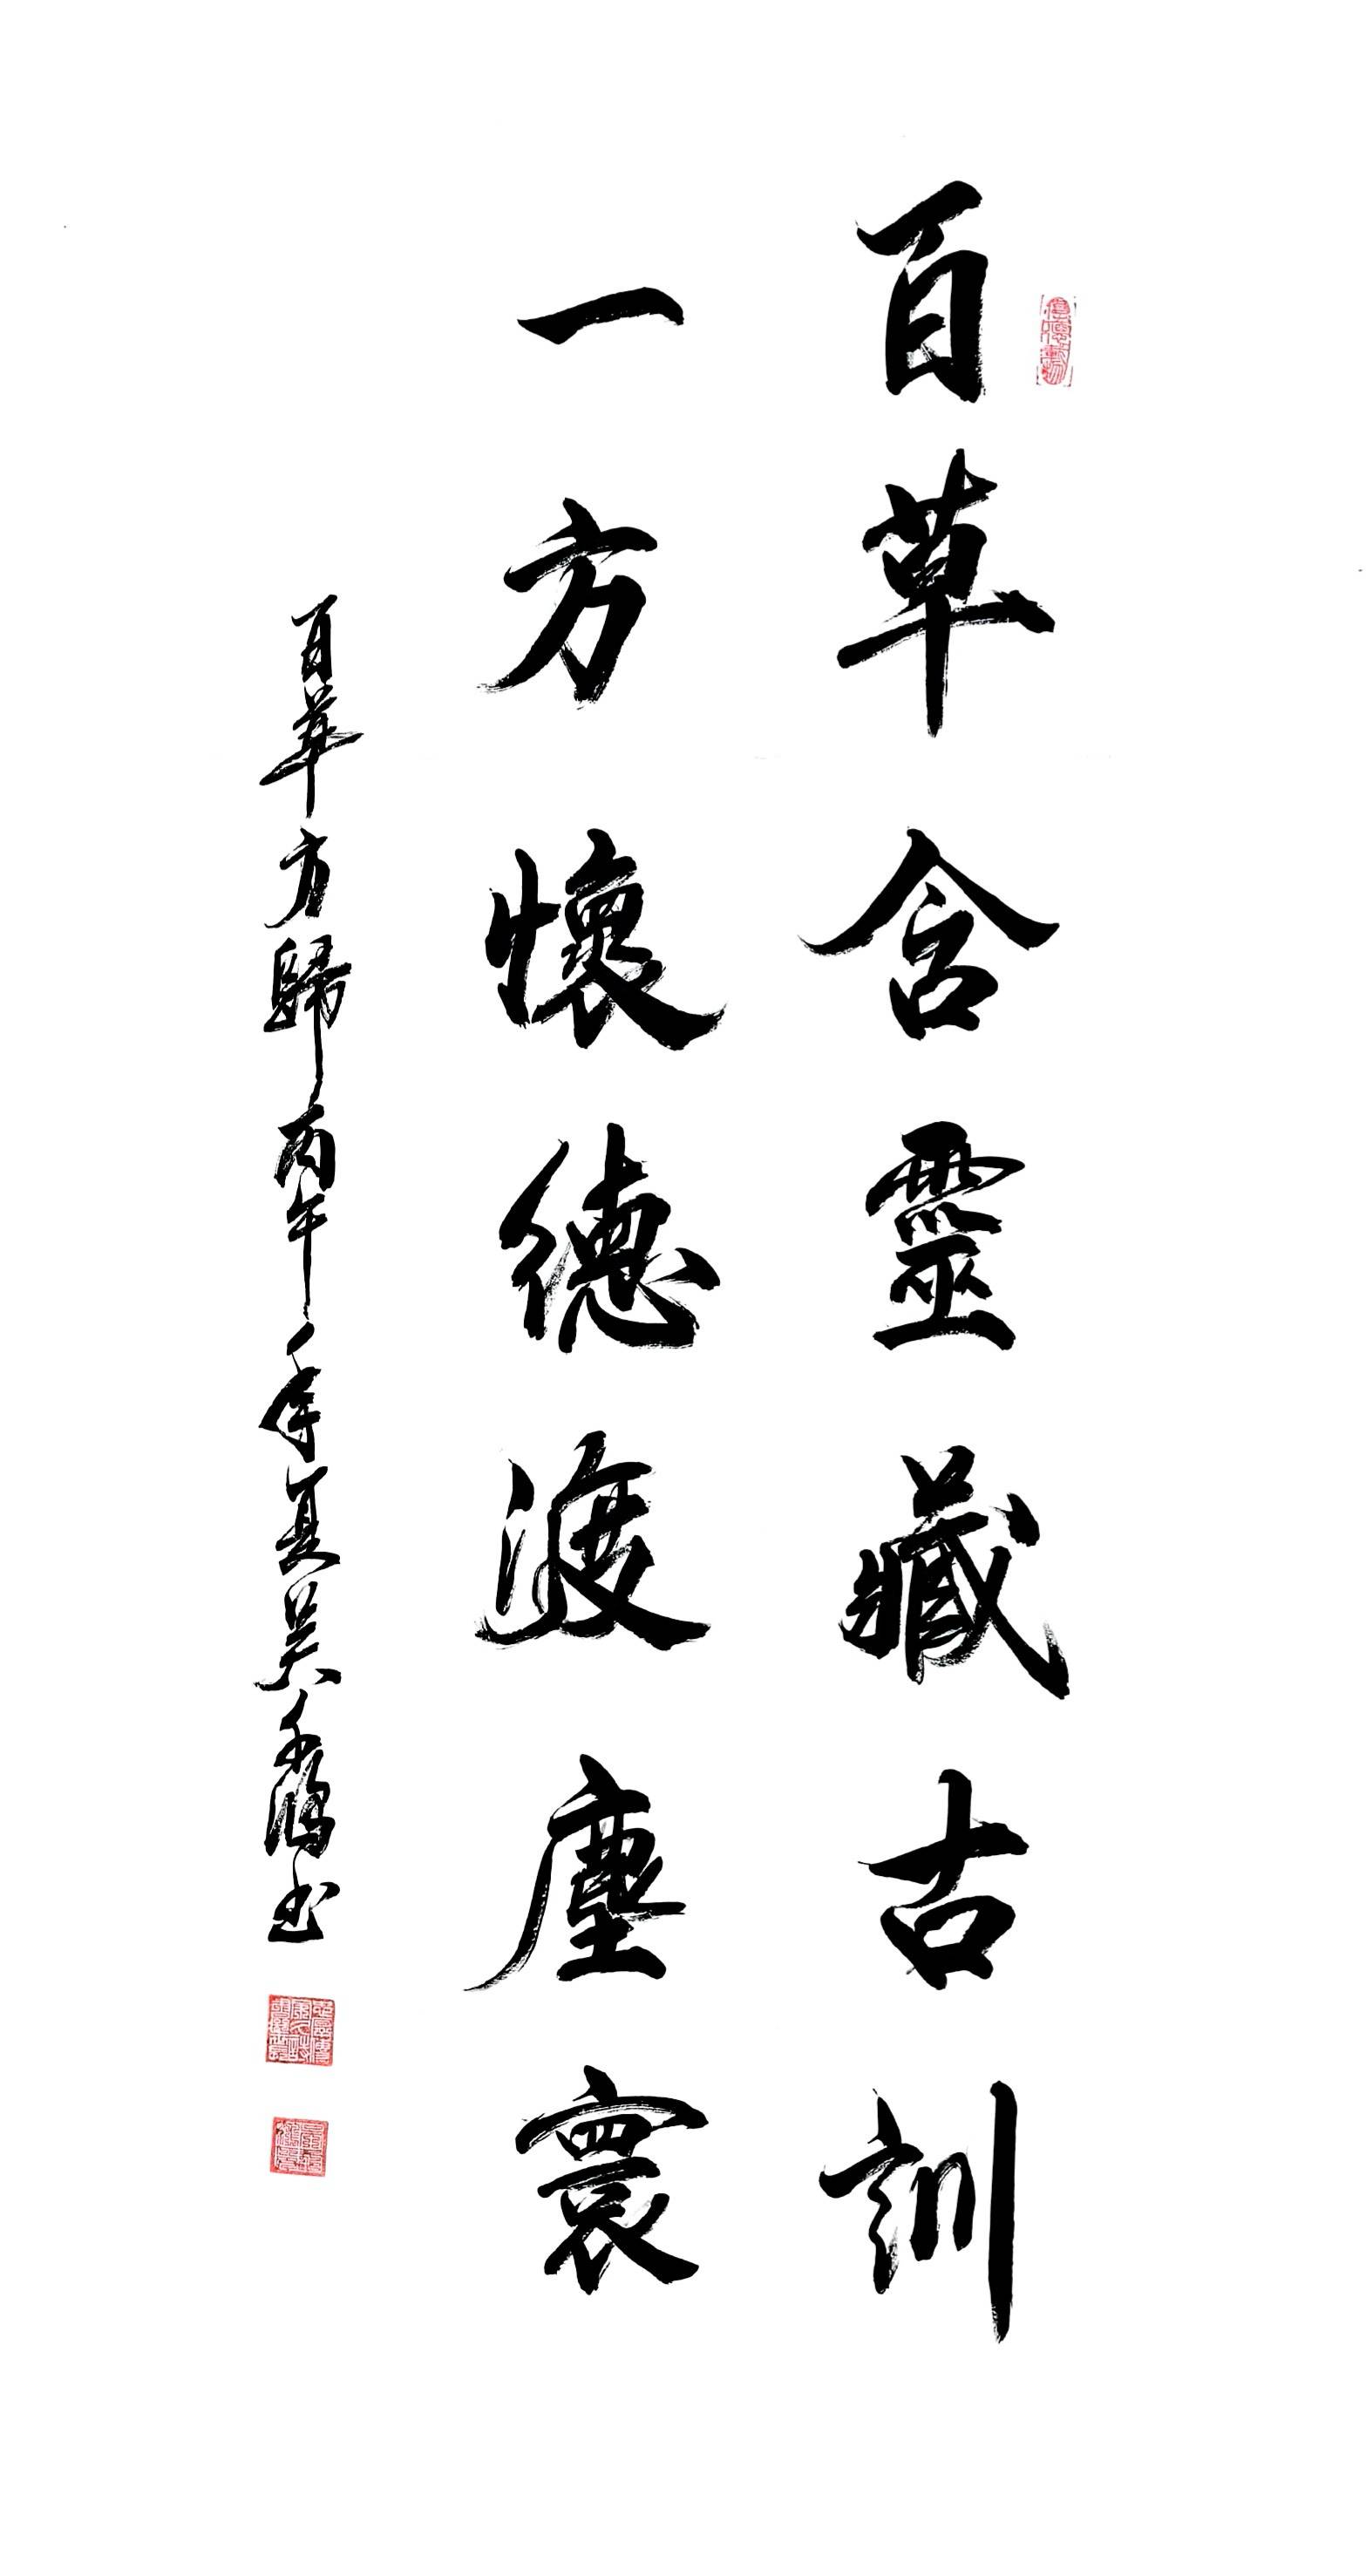 百草含靈藏古訓
一方懷德渡塵寰
百草方歸丙午年夏吳永鴻书